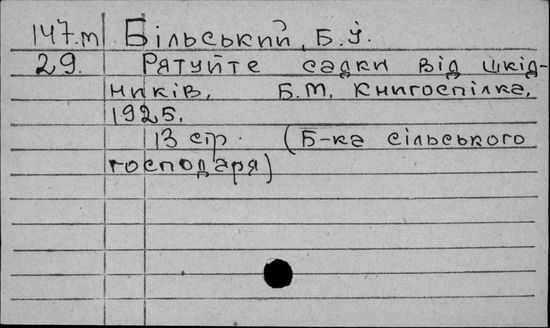 147.м Більський, Б. Й.
29. Рятуйте садки від шкід-
ників. Б.М. Книгоспілка,
1925.
13 стр. (Б-ка сільського
господаря)